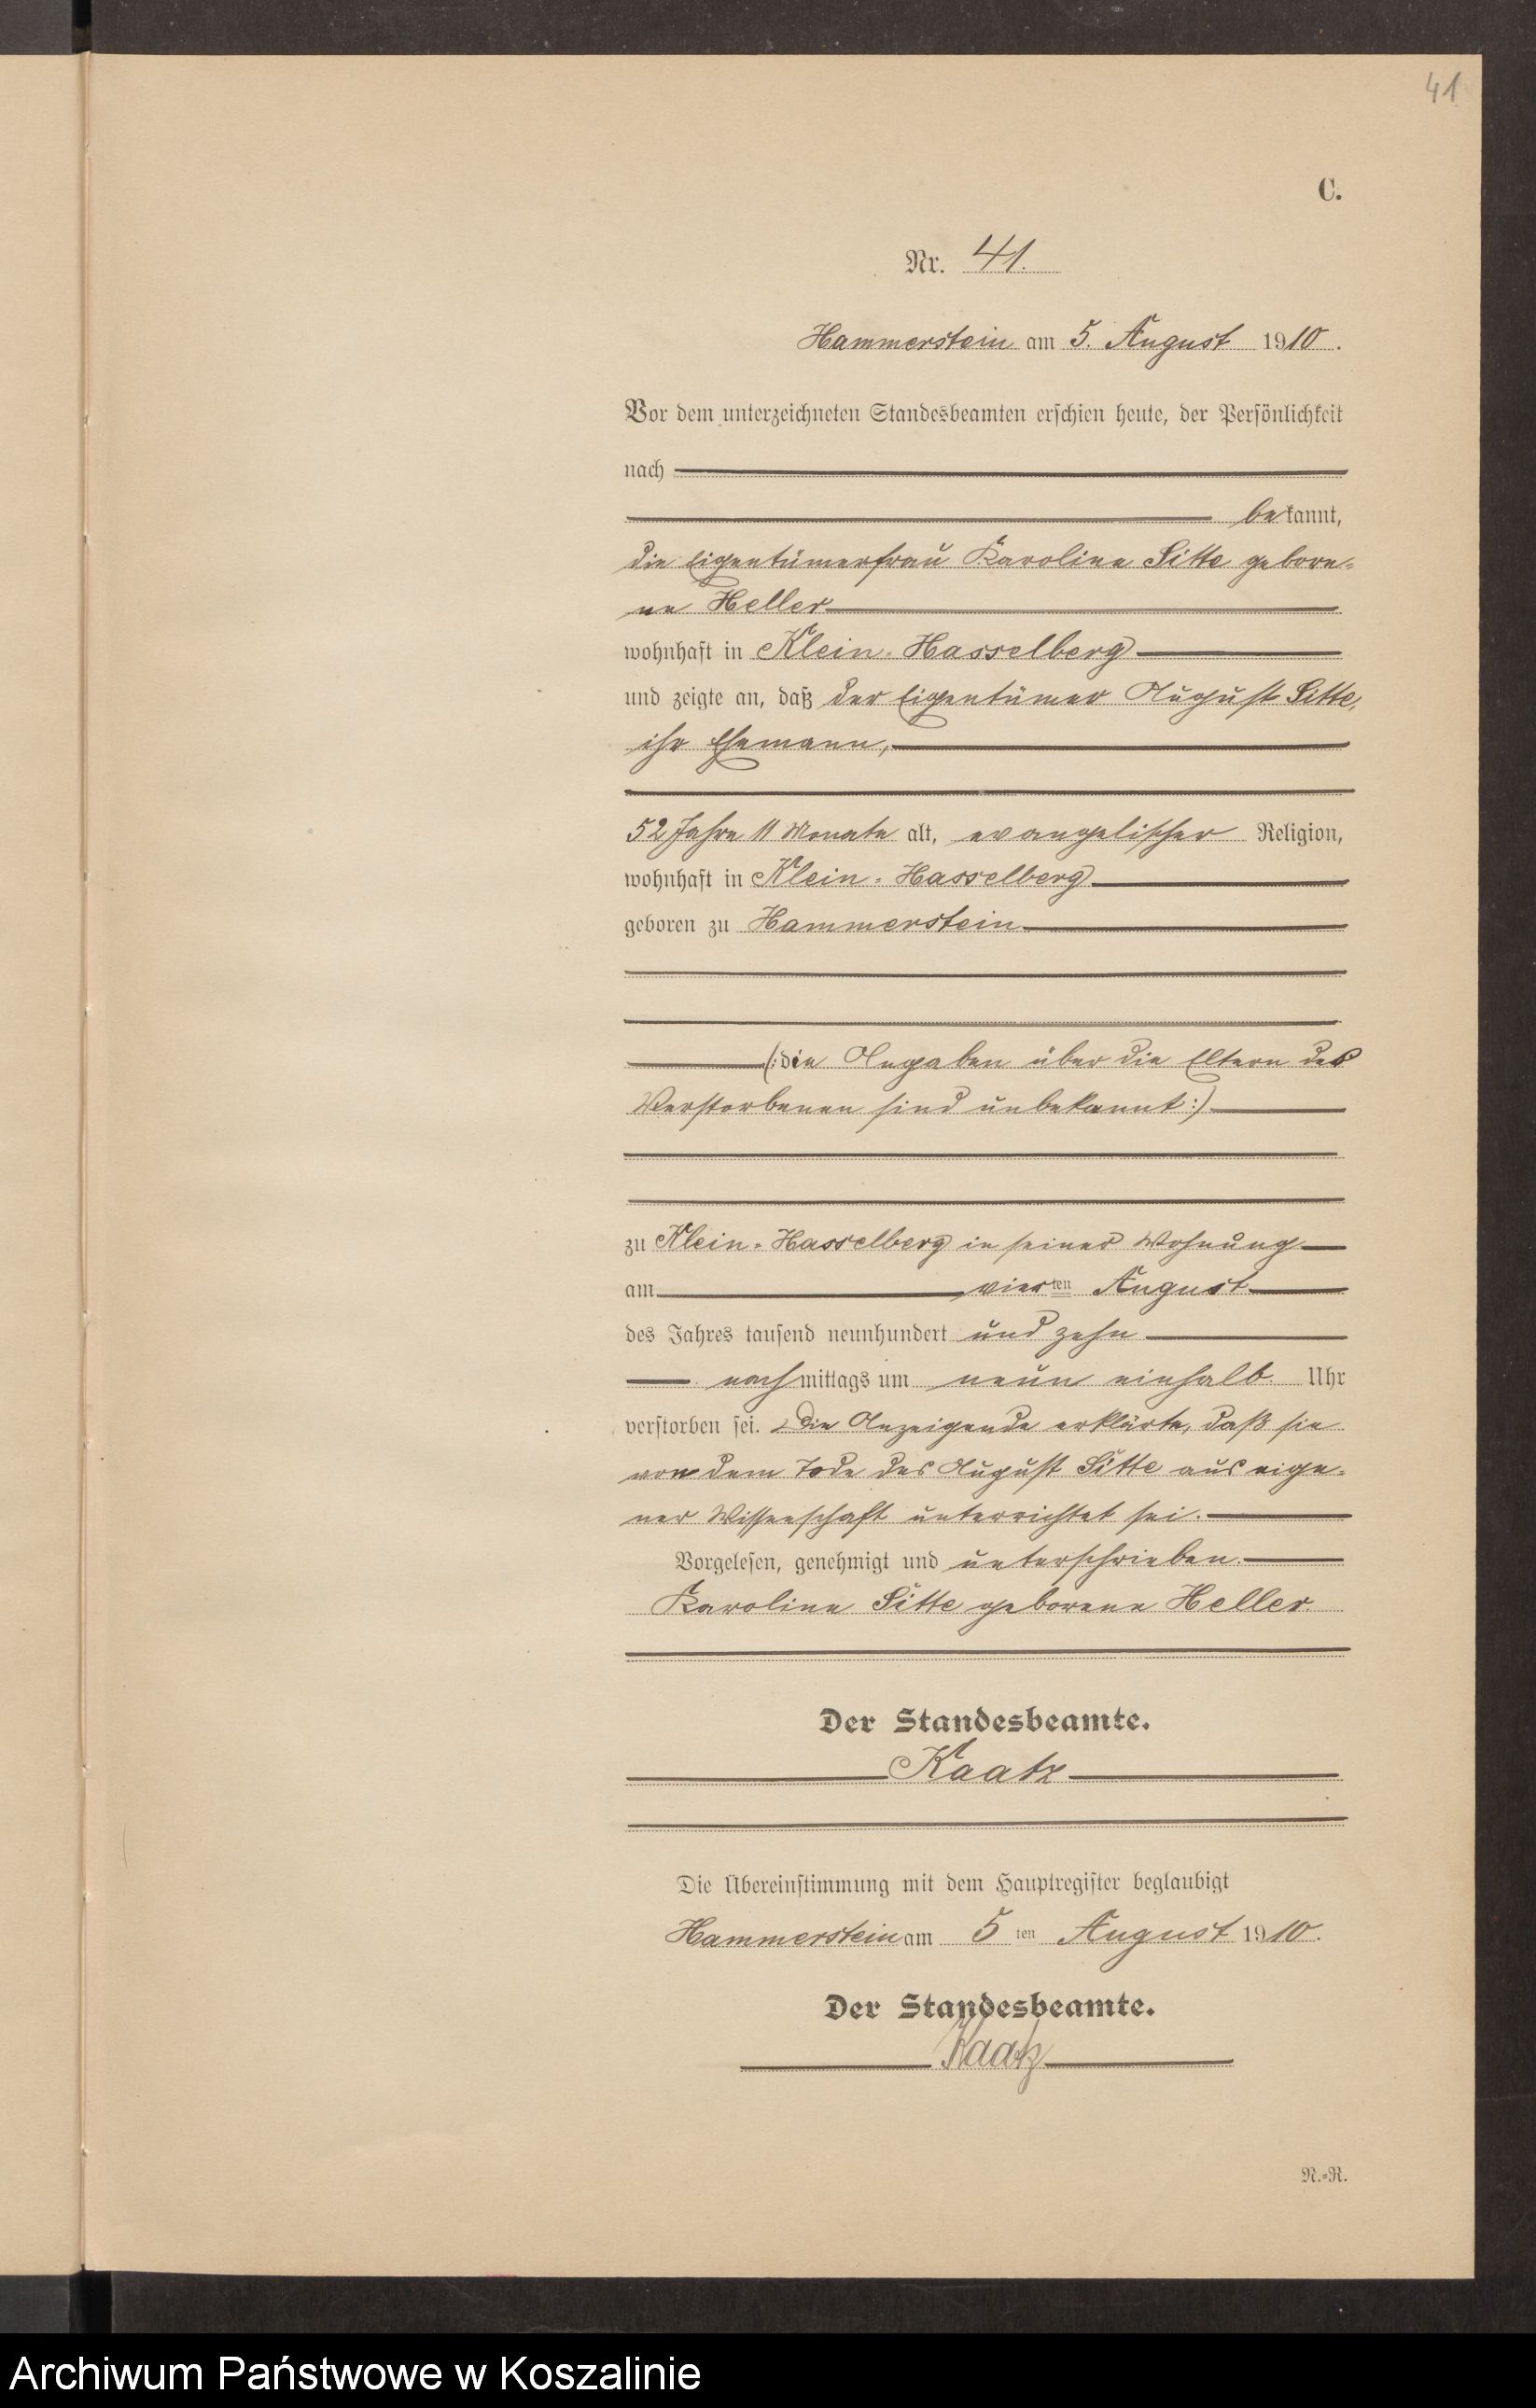 41
C.
Nr. 41.
Hammerstein am 5. August 1910.
Vor dem unterzeichneten Standesbeamten erschien heute, der Persönlichkeit
nach
bekannt,
die Eigentümerfrau Karoline Sitte gebore-
ne Heller
wohnhaft in Klein-Hasselberg
und zeigte an, daß der Eigentümer August Sitte,
ihr Ehemann,
52 Jahre 11 Monate alt, evangelischer Religion,
wohnhaft in Klein-Hasselberg
geboren zu Hammerstein
(:die Angaben über die Eltern des
Verstorbenen sind unbekannt:)
zu Klein-Hasselberg in seiner Wohnung
am vierten August
des Jahres tausend neunhundert und zehn
nachmittags um neun einhalb Uhr
verstorben sei. Die Anzeigende erklärte, daß sie
von dem Tode des August Sitte aus eige-
ner Wissenschaft unterrichtet sei.
Vorgelesen, genehmigt und unterschrieben.
Karoline Sitte geborene Heller.
Der Standesbeamte.
Kaatz
Die Übereinstimmung mit dem Hauptregister beglaubigt
Hammerstein am 5ten August 1910.
Der Standesbeamte.
Kaatz
N.-R.
Archiwum Państwowe w Koszalinie